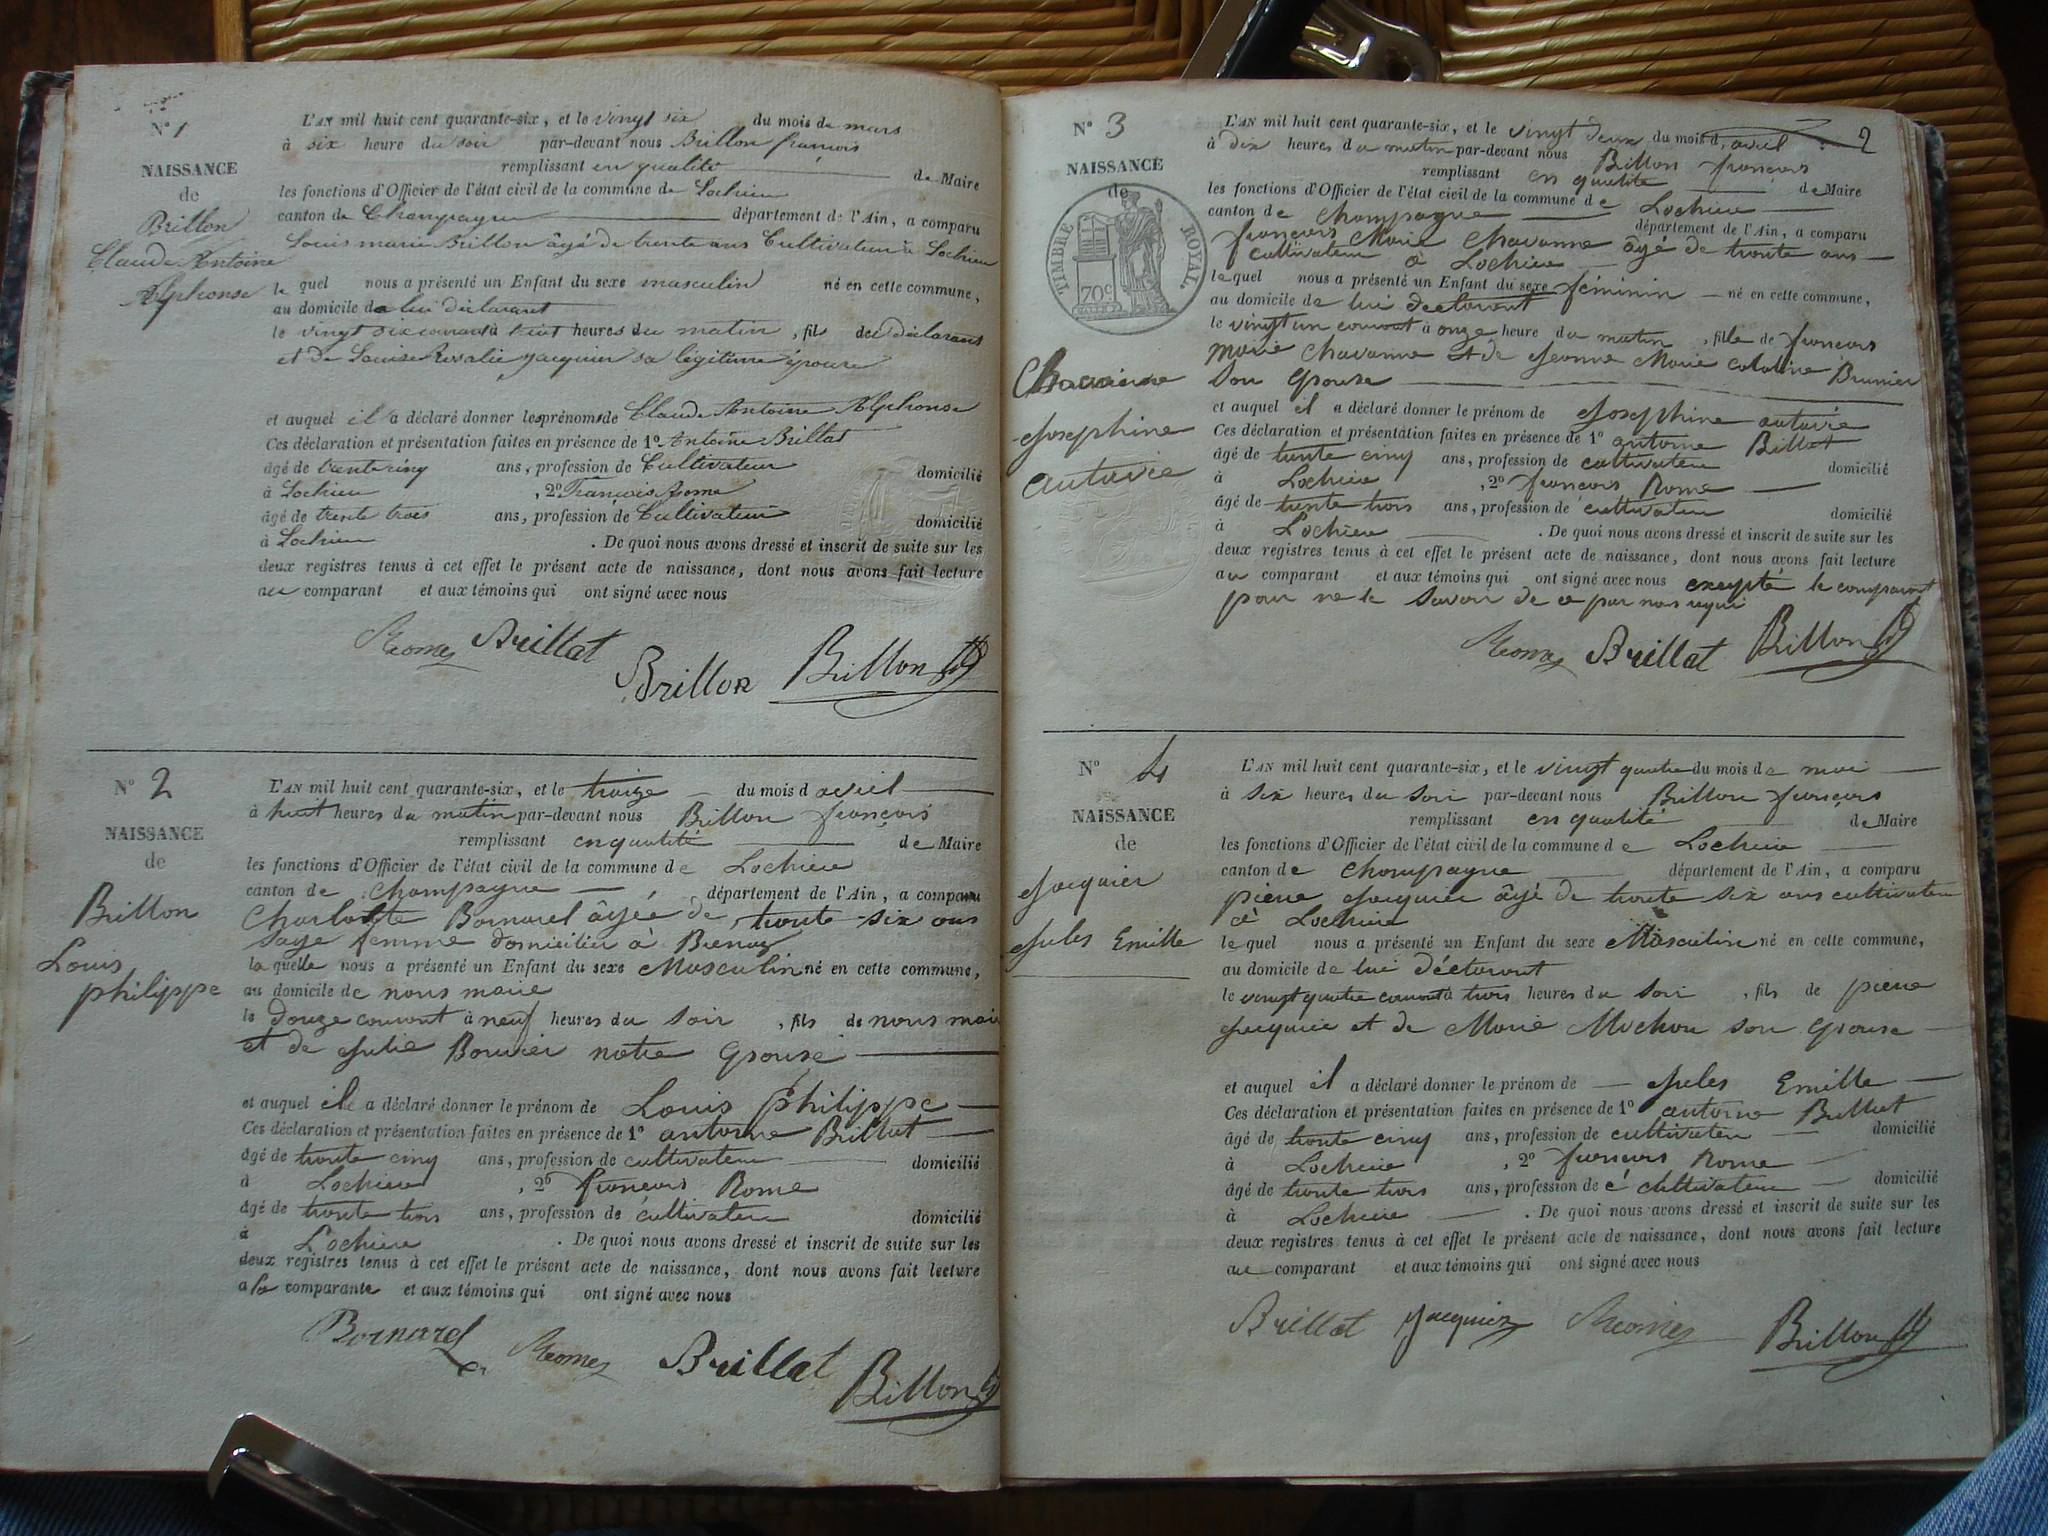 N° 1
NAISSANCE
de
Brillon
Claude Antoine
Alphonse
L'AN mil huit cent quarante-six, et le vingt six du mois de mars
à six heure du soir par-devant nous Brillon françois
remplissant en qualité de Maire
les fonctions d'Officier de l'état civil de la commune de Lochieu
canton de Champagne département de l'Ain, a comparu
Louis marie Brillon âgé de trente ans Cultivateur à Lochieu
le quel nous a présenté un Enfant du sexe masculin né en cette commune,
au domicile de lui déclarant
le vingt six courant à huit heures du matin, fils du déclarant
et de Louise Rosalie jacquier sa légitime épouse
et auquel il a déclaré donner les prénoms de Claude Antoine Alphonse
Ces déclaration et présentation faites en présence de 1° Antoine Brillat
âgé de trente cinq ans, profession de Cultivateur domicilié
à Lochieu, 2° François Rome
âgé de trente trois ans, profession de Cultivateur domicilié
à Lochieu. De quoi nous avons dressé et inscrit de suite sur les
deux registres tenus à cet effet le présent acte de naissance, dont nous avons fait lecture
au comparant et aux témoins qui ont signé avec nous
Rome Brillat
Brillon Brillon
N° 2
NAISSANCE
de
Brillon
Louis
philippe
L'AN mil huit cent quarante-six, et le treize du mois d avril
à huit heures du matin par-devant nous Brillon françois
remplissant en qualité de Maire
les fonctions d'Officier de l'état civil de la commune de Lochieu
canton de Champagne département de l'Ain, a comparu
Charlotte Bornarel âgée de trente six ans
sage femme domiciliée à
la quelle nous a présenté un Enfant du sexe Masculin né en cette commune,
au domicile de nous maire
le douze courant à neuf heures du soir, fils de nous maire
et de Julie Bouvier notre epouse
et auquel il a déclaré donner le prénom de Louis philippe
Ces déclaration et présentation faites en présence de 1° antoine Brillat
âgé de trente cinq ans, profession de cultivateur domicilié
à Lochieu, 2° françois Rome
âgé de trente trois ans, profession de cultivateur domicilié
à Lochieu. De quoi nous avons dressé et inscrit de suite sur les
deux registres tenus à cet effet le présent acte de naissance, dont nous avons fait lecture
a la comparante et aux témoins qui ont signé avec nous
Bornarel Rome Brillat Brillon
2
N° 3
NAISSANCE
de
TIMBRE ROYAL
70c
Chavanne
Josephine
autavie
L'AN mil huit cent quarante-six, et le vingt deux du mois d avril
à dix heures du matin par-devant nous Brillon françois
remplissant en qualité de Maire
les fonctions d'Officier de l'état civil de la commune de Lochieu
canton de Champagne département de l'Ain, a comparu
françois Marie Chavanne âgé de trente ans
cultivateur à Lochieu
le quel nous a présenté un Enfant du sexe féminin né en cette commune,
au domicile de lui déclarant
le vingt un courant à onze heure du matin, fille de françois
Marie Chavanne et de Jeanne Marie Brunier
son epouse
et auquel il a déclaré donner le prénom de Josephine autavie
Ces déclaration et présentation faites en présence de 1° antoine Brillat
âgé de trente cinq ans, profession de cultivateur domicilié
à Lochieu, 2° françois Rome
âgé de trente trois ans, profession de cultivateur domicilié
à Lochieu. De quoi nous avons dressé et inscrit de suite sur les
deux registres tenus à cet effet le présent acte de naissance, dont nous avons fait lecture
au comparant et aux témoins qui ont signé avec nous excepté le comparant
pour ne le savoir de ce par nous requi
Rome Brillat Brillon
N° 4
NAISSANCE
de
Jacquier
Jules Emille
L'AN mil huit cent quarante-six, et le vingt quatre du mois de mai
à six heures du soir par-devant nous Brillon françois
remplissant en qualité de Maire
les fonctions d'Officier de l'état civil de la commune de Lochieu
canton de Champagne département de l'Ain, a comparu
pierre Jacquier âgé de trente six ans cultivateur
à Lochieu
le quel nous a présenté un Enfant du sexe Masculin né en cette commune,
au domicile de lui déclarant
le vingt quatre courant à trois heures du soir, fils de pierre
Jacquier et de Marie Mochon son epouse
et auquel il a déclaré donner le prénom de Jules Emille
Ces déclaration et présentation faites en présence de 1° antoine Brillat
âgé de trente cinq ans, profession de cultivateur domicilié
à Lochieu, 2° françois Rome
âgé de trente trois ans, profession de cultivateur domicilié
à Lochieu. De quoi nous avons dressé et inscrit de suite sur les
deux registres tenus à cet effet le présent acte de naissance, dont nous avons fait lecture
au comparant et aux témoins qui ont signé avec nous
Brillat Jacquier Rome Brillon